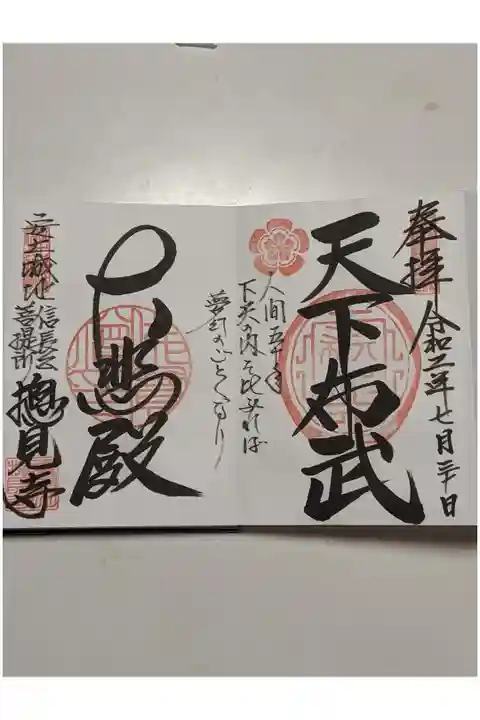 奉拝 令和二年七月三十日
天下布武
人間五十年
下天の内を比ぶれば
夢幻のごとくなり
大悲殿
安土城址
信長公
菩提所
摠見寺